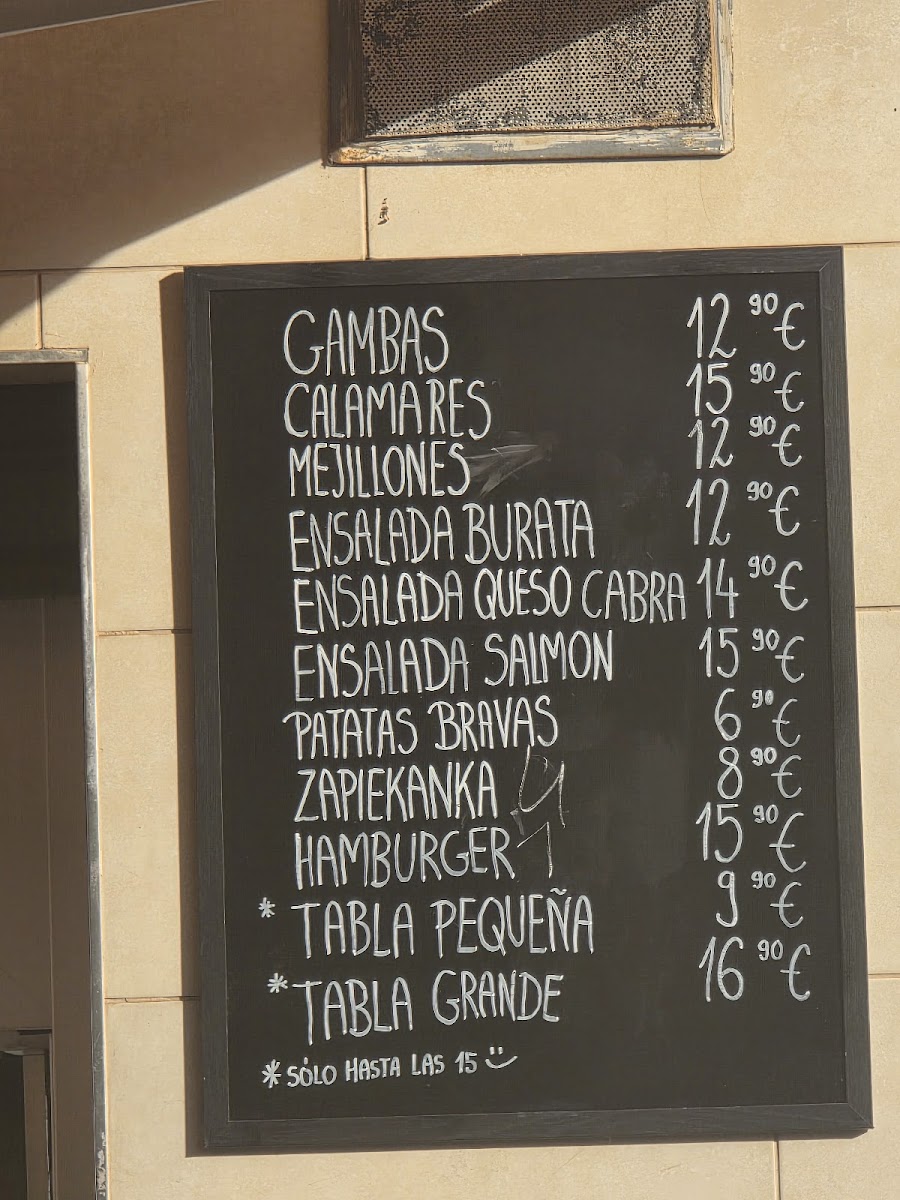 GAMBAS 12 90 €
CALAMARES 15 90 €
MEJILLONES 12 90 €
ENSALADA BURATA 12 90 €
ENSALADA QUESO CABRA 14 90 €
ENSALADA SALMON 15 90 €
PATATAS BRAVAS 6 90 €
ZAPIEKANKA 8 90 €
HAMBURGER 15 90 €
* TABLA PEQUEÑA 9 90 €
* TABLA GRANDE 16 90 €
* SÓLO HASTA LAS 15